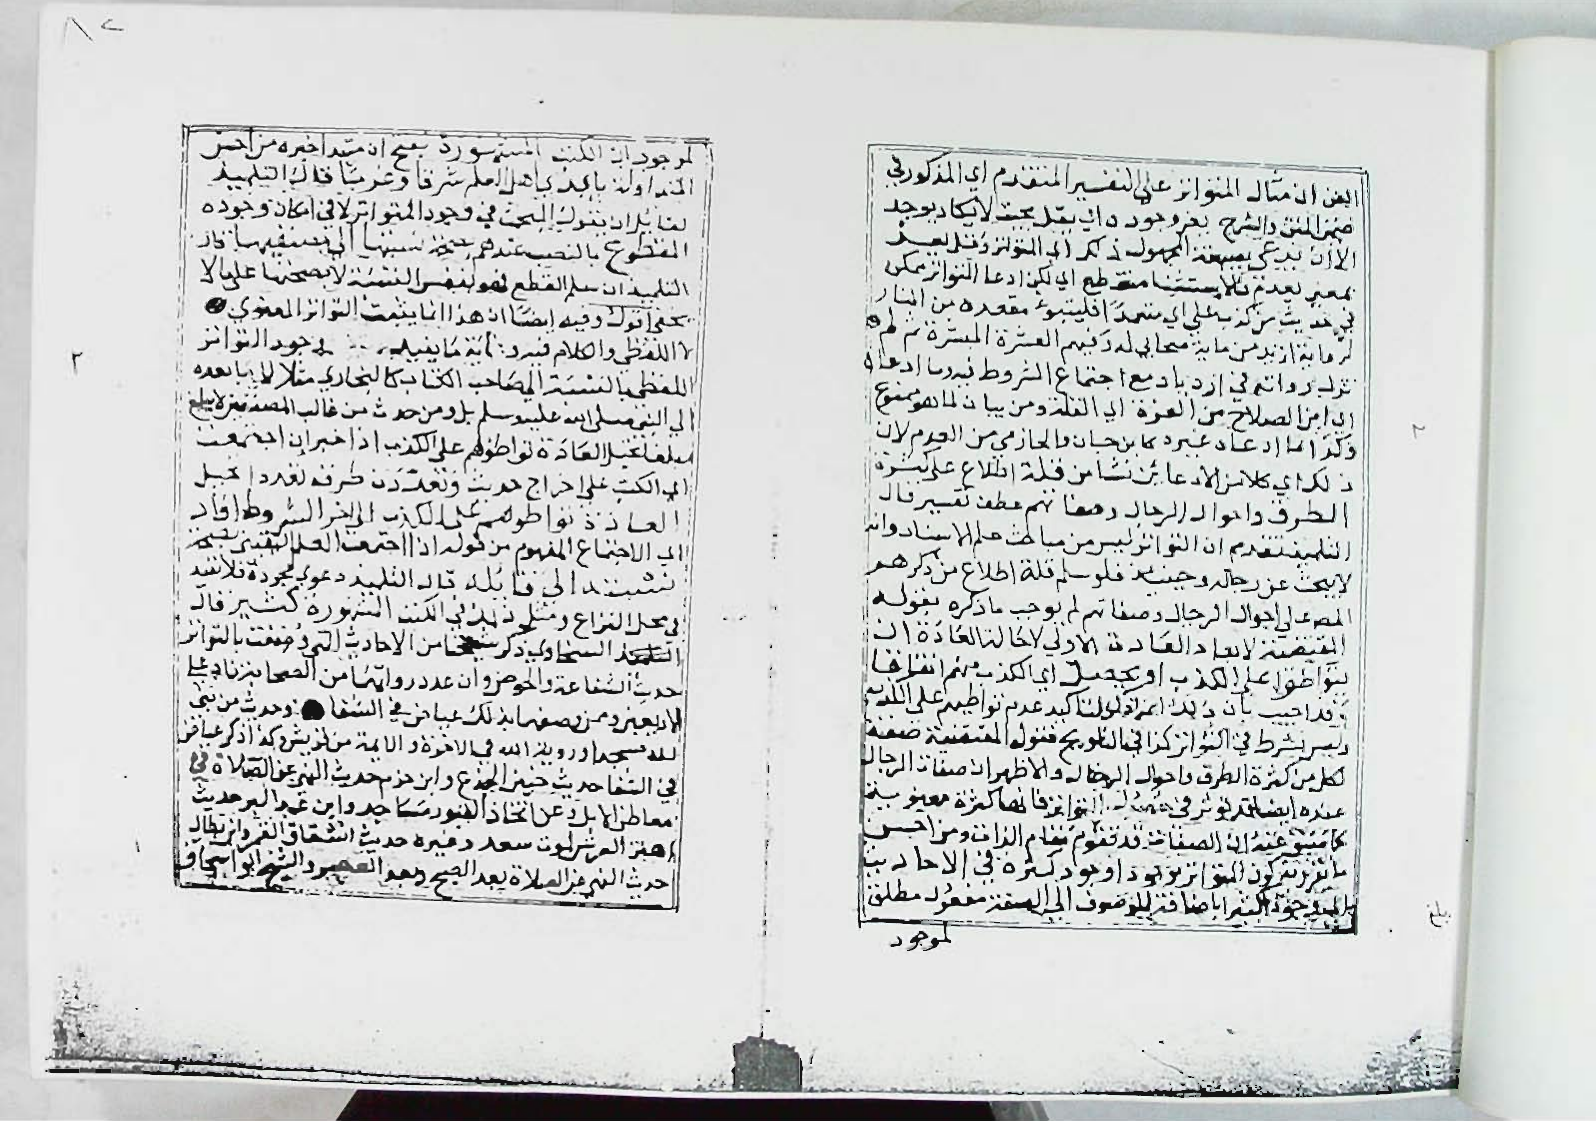 الفن ان مثال المتواتر على التفسير المتقدم اي المذكور في
ضمن المتن والشرح يعز وجوده اي يقل بحيث لا يكاد يوجد
الا ان يدعى بصيغة المجهول ذلك اي التواتر وقيل يعز
بمعنى يعدم فالاستثناء منقطع اي لكن ادعا التواتر ممكن
في حديث من كذب علي اي متعمدا فليتبوء مقعده من النار
ازيد من ماية صحابي وفيهم العشرة المبشرة ثم لم
تزل رواته في ازدياد مع اجتماع الشروط فيه وما ادعاه
ابن الصلاح من العزة اي القلة ومن بيان لما هو ممنوع
وكذا ما ادعاه غيره كابن حبان والحازمي من العدم لان
ذلك اي كلا من الادعائين نشا من قلة اطلاع على كثرة
الطرق واحوال الرجال وصفاتهم عطف تفسير قال
التلميذ تقدم ان التواتر ليس من مباحث علم الاسناد وانه
لا يبحث عن رجاله وحينئذ فلو سلم قلة اطلاع من ذكرهم
المص على احوال الرجال وصفاتهم لم يوجب ما ذكره بقوله
المقتضية لابعاد العادة الاولى لاحالة العادة ان
يتواطئوا على الكذب او يحصل اي الكذب منهم اتفاقا
وقد اجيب بان ذلك لتاكيد عدم تواطيهم على الكذب
وليس بشرط في التواتر كذا في التلويح فقوله المقتضية صفة
لكل من كثرة الطرق واحوال الرجال والاظهر ان صفات الرجال
عنده ايضا قد تؤثر في التواتر فانها كثرة معنوية
كما سبق عنه ان الصفات قد تقوم مقام الذات ومن احسن
ما تقرر به كون المتواتر موجودا وجود كثرة في الاحاديث
باضافة الموصوف الى الصفة مفعول مطلق
لموجود
لموجود ان الكتب المشهورة بفتح ان مبتدا خبره من احسن
المتداولة بايدي اهل العلم شرقا وغربا قال التلميذ
لقائل ان يقول البحث في وجود المتواتر لا في امكان وجوده
المقطوع بالنصب عندهم صحة نسبتها الى مصنفيها قال
التلميذ ان سلم القطع فهو لنفس النسبة لا بصحتها على ما لا
يخفى اقول وفيه ايضا ان هذا انما يثبت التواتر المعنوي
لا اللفظي والكلام فيه وغاية ما يفيد وجود التواتر
اللفظي بالنسبة الى صاحب الكتاب كالبخاري مثلا لا لما بعده
الى النبي صلى الله عليه وسلم بل ومن حدث من غالب المصنفين لا يبلغ
مبلغا تحيل العادة تواطؤهم على الكذب اذا خبر ان اجتمعت
اي الكتب على اخراج حديث وتعددت طرقه تعددا تحيل
العادة تواطؤهم على الكذب الى اخر الشروط افاد
اي الاجتماع المفهوم من قوله اذا اجتمعت العلم اليقيني بصحة
نسبته الى قائله قال التلميذ دعوى مجردة فلا تفيد
في محل النزاع ومثل ذلك في الكتب المشهورة كثير قال
السخاوي ذكر شيخنا من الاحاديث التي وصفت بالتواتر
حديث الشفاعة والحوض وان عدد رواتهما من الصحابة زاد على
الاربعين وممن وصفهما بذلك عياض في الشفا وحديث من بنى
لله مسجدا ورؤية الله في الاخرة والايمة من قريش وكذا ذكر عياض
في الشفا حديث حنين الجذع وابن حزم حديث النهي عن الصلاة في
معاطن الابل وعن اتخاذ القبور مساجد وابن عبد البر حديث
اهتز العرش لموت سعد وغيره حديث انشقاق القمر وابن بطال
حديث النهي عن الصلاة بعد الصبح وبعد العصر والشيخ ابو اسحاق